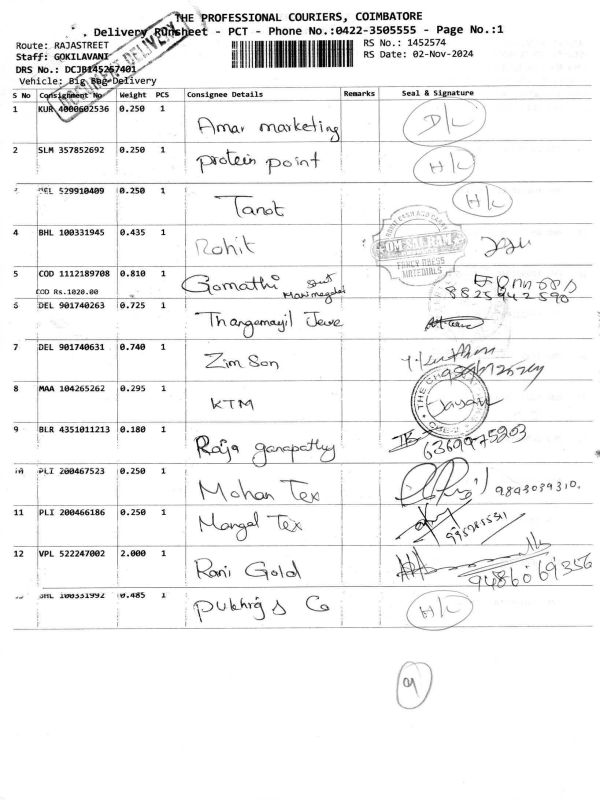 THE PROFESSIONAL COURIERS, COIMBATORE
Delivery Runsheet - PCT - Phone No.:0422-3505555 - Page No.:1
Route: RAJASTREET
RS No.: 1452574
Staff: GOKILAVANI
RS Date: 02-Nov-2024
DRS No.: DCJB145257401
Vehicle: Big Bag Delivery
DOCUMENT DELIVERY
S No Consignment No Weight PCS Consignee Details Remarks Seal & Signature
1 KUR 4000602536 0.250 1 Amar marketing D/L
2 SLM 357852692 0.250 1 protein point H/L
529910409 0.250 1 Tanot H/L
4 BHL 100331945 0.435 1 Rohit
FANCY DRESS
MATERIALS
5 COD 1112189708 0.810 1 Gomathi
COD Rs.1020.00
8825942590
6 DEL 901740263 0.725 1 Thangamayil Jewe
7 DEL 901740631 0.740 1 Zim Son
8 MAA 104265262 0.295 1 KTM
9 BLR 4351011213 0.180 1 Raja ganapathy
6369975203
10 PLI 200467523 0.250 1 Mohan Tex 9843039310.
11 PLI 200466186 0.250 1 Mangal Tex
12 VPL 522247002 2.000 1 Rani Gold
9486069356
100331992 0.485 1 H/L
9